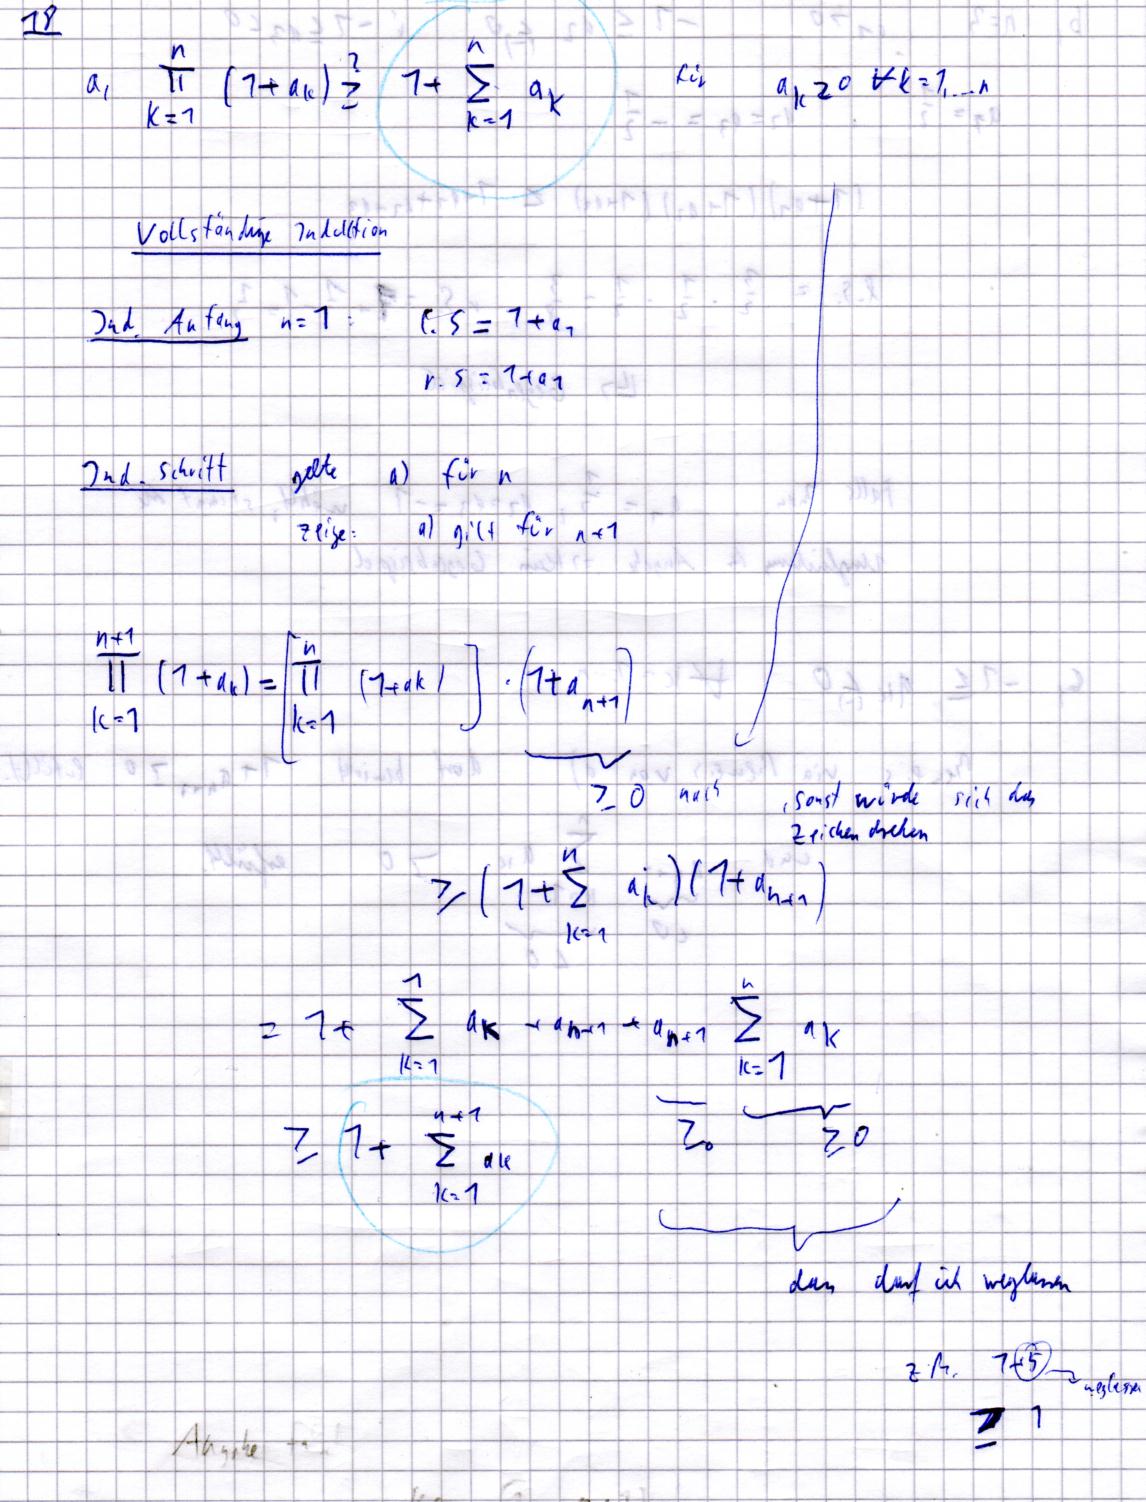 18
a, n ∏ k=1 (1+ak) ≥? 1+ n ∑ k=1 ak für ak ≥ 0 ∀k=1,...n
Vollständige Induktion
Ind. Anfang n=1: l.S = 1+a1
r.S = 1+a1
Ind. Schritt gelte a) für n
zeige: a) gilt für n+1
n+1 ∏ k=1 (1+ak) = [ n ∏ k=1 (1+ak) ] · (1+an+1)
≥ 0 nach , sonst würde sich das
Zeichen drehen
≥ (1+ n ∑ k=1 ak)(1+an+1)
= 1+ 1 ∑ k=1 ak + an+1 + an+1 n ∑ k=1 ak
≥0 ≥0
≥ 1+ n+1 ∑ k=1 ak
darf ich weglassen
z.B. 1+5 → weglassen
≥ 1
Angabe